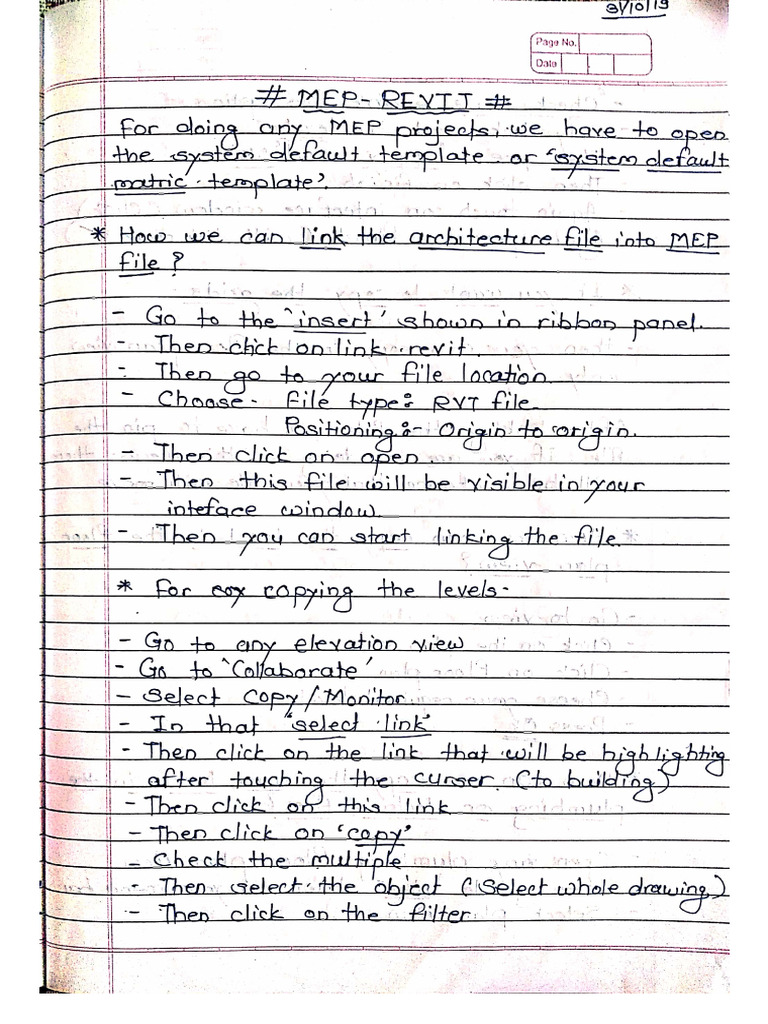 31/10/19
Page No.
Date
# MEP - REVIT #
For doing any MEP projects, we have to open
the system default template or 'system default
matric template'.
* How we can link the architecture file into MEP
file?
- Go to the 'insert' shown in ribbon panel.
- Then click on link revit.
- Then go to your file location.
- Choose - file type: RVT file.
Positioning:- Origin to origin.
- Then click on open.
- Then this file will be visible in your
inteface window.
- Then you can start linking the file.
* For copying the levels-
- Go to any elevation view
- Go to 'Collaborate'
- Select Copy/Monitor
- In that 'select link'
- Then click on the link that will be highlighting
after touching the curser. (to building)
- Then click on this link
- Then click on 'copy'
- Check the multiple
- Then select the object (Select whole drawing)
- Then click on the filter